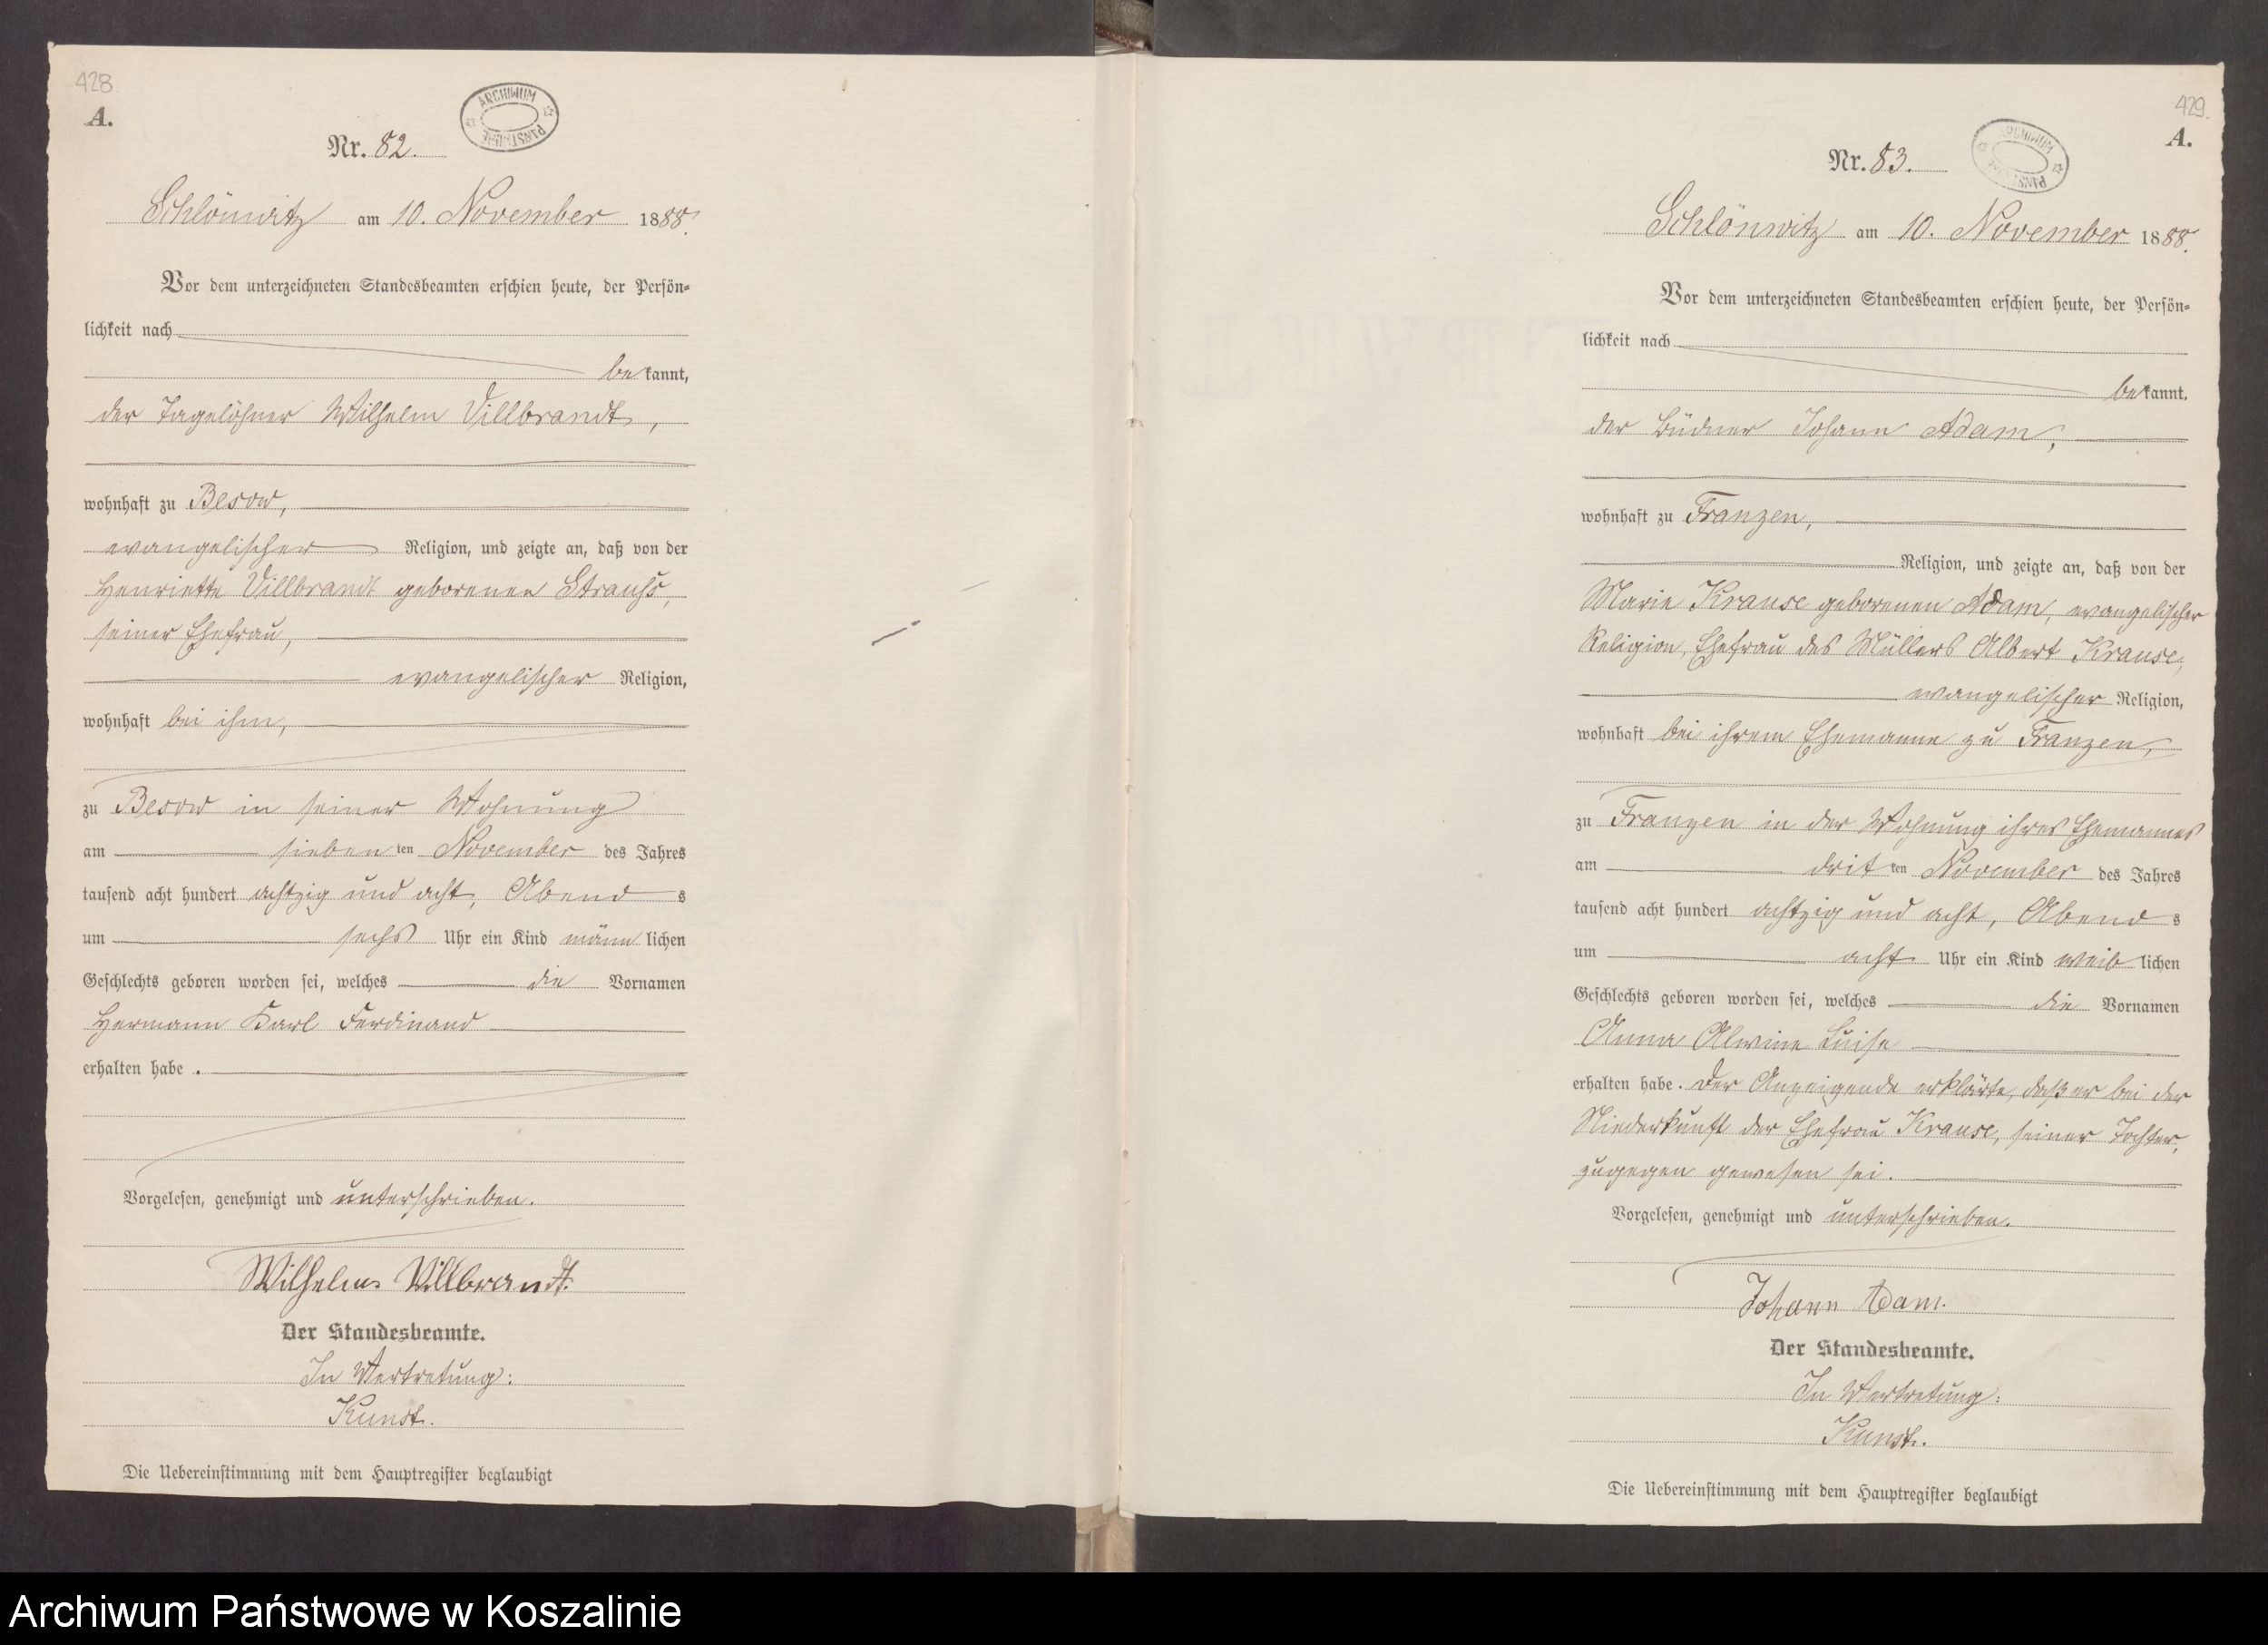 428
A.
ARCHIWUM PAŃSTWOWE
Nr. 82.
Schlönwitz am 10. November 1888.
Vor dem unterzeichneten Standesbeamten erschien heute, der Persön-
lichkeit nach
bekannt,
der Tagelöhner Wilhelm Villbrandt,
wohnhaft zu Besow,
evangelischer Religion, und zeigte an, daß von der
Henriette Villbrandt geborenen Strauhs,
seiner Ehefrau,
evangelischer Religion,
wohnhaft bei ihm,
zu Besow in seiner Wohnung
am siebenten November des Jahres
tausend acht hundert achtzig und acht, Abends
um sechs Uhr ein Kind männlichen
Geschlechts geboren worden sei, welches die Vornamen
Hermann Karl Ferdinand
erhalten habe.
Vorgelesen, genehmigt und unterschrieben.
Wilhelm Villbrandt.
Der Standesbeamte.
In Vertretung:
Kunst.
Die Uebereinstimmung mit dem Hauptregister beglaubigt
429.
A.
ARCHIWUM PAŃSTWOWE
Nr. 83.
Schlönwitz am 10. November 1888.
Vor dem unterzeichneten Standesbeamten erschien heute, der Persön-
lichkeit nach
bekannt,
der Büdner Johann Adam,
wohnhaft zu Franzen,
Religion, und zeigte an, daß von der
Marie Krause geborenen Adam, evangelischer
Religion, Ehefrau des Müllers Albert Krause,
evangelischer Religion,
wohnhaft bei ihrem Ehemanne zu Franzen,
zu Franzen in der Wohnung ihres Ehemannes
am dritten November des Jahres
tausend acht hundert achtzig und acht, Abends
um acht Uhr ein Kind weiblichen
Geschlechts geboren worden sei, welches die Vornamen
Anna Alwine Luise
erhalten habe. Der Anzeigende erklärte, daß er bei der
Niederkunft der Ehefrau Krause, seiner Tochter,
zugegen gewesen sei.
Vorgelesen, genehmigt und unterschrieben.
Johann Adam.
Der Standesbeamte.
In Vertretung:
Kunst.
Die Uebereinstimmung mit dem Hauptregister beglaubigt
Archiwum Państwowe w Koszalinie